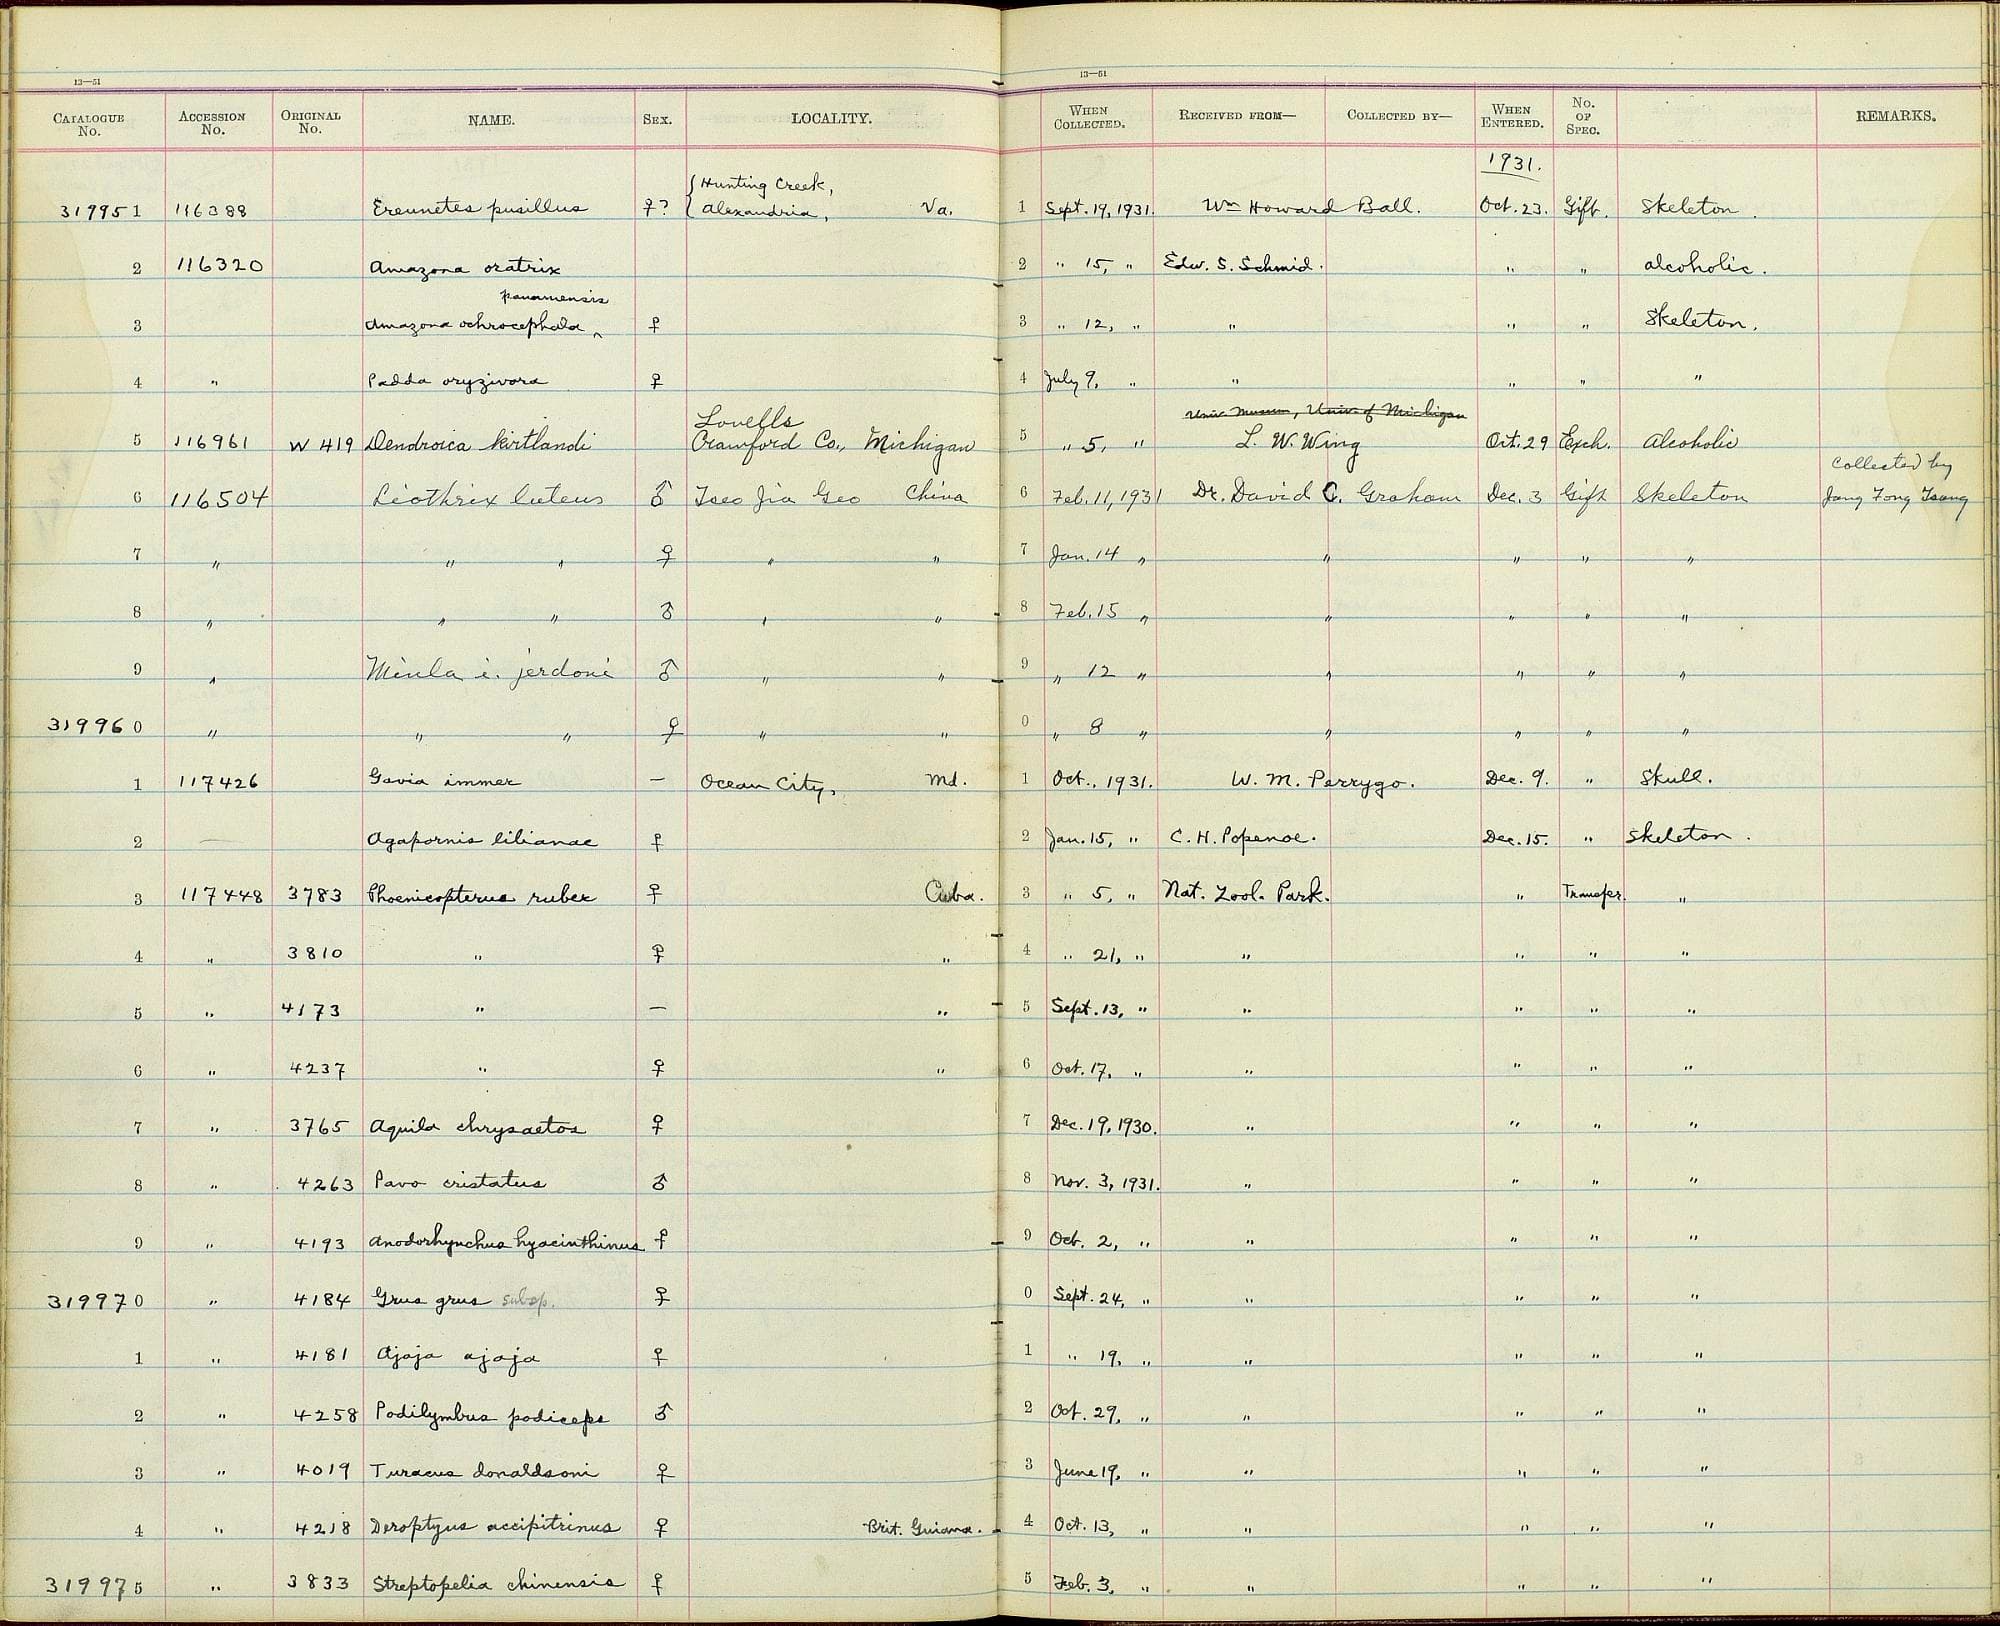 13—51
13—51
CATALOGUE No. ACCESSION No. ORIGINAL No. NAME. SEX. LOCALITY. WHEN COLLECTED. RECEIVED FROM— COLLECTED BY— WHEN ENTERED. No. OF SPEC. REMARKS.
1931.
Hunting Creek,
319951 116388 Ereunetes pusillus ♀? Alexandria, Va. 1 Sept. 19, 1931. Wm Howard Ball. Oct. 23. Gift. Skeleton.
2 116320 Amazona oratrix 2 " 15, " Edw. S. Schmid. " " alcoholic.
panamensis
3 Amazona ochrocephala ‸ ♀ 3 " 12, " " " " Skeleton.
4 " Padda oryzivora ♀ 4 July 9, " " " " "
Lovells Univ. Museum, Univ. of Michigan
5 116961 W 419 Dendroica kirtlandi Crawford Co., Michigan 5 " 5, " L. W. Wing Oct. 29 Exch. Alcoholic
Collected by
6 116504 Liothrix luteus ♂ Tseo Jia Geo China 6 Feb. 11, 1931 Dr. David C. Graham Dec. 3 Gift Skeleton Jang Fong Tsang
7 " " " ♀ " " 7 Jan. 14 " " " " "
8 " " " ♂ " " 8 Feb. 15 " " " " "
9 " Minla i. jerdoni ♂ " " 9 " 12 " " " " "
319960 " " " ♀ " " 0 " 8 " " " " "
1 117426 Gavia immer — Ocean City, Md. 1 Oct., 1931. W. M. Perrygo. Dec. 9. " Skull.
2 — Agapornis lilianae ♀ 2 Jan. 15, " C. H. Popenoe. Dec. 15. " Skeleton.
3 117448 3783 Phoenicopterus ruber ♀ Cuba. 3 " 5, " Nat. Zool. Park. " Transfer. "
4 " 3810 " ♀ " 4 " 21, " " " " "
5 " 4173 " — " 5 Sept. 13, " " " " "
6 " 4237 " ♀ " 6 Oct. 17, " " " " "
7 " 3765 Aquila chrysaetos ♀ 7 Dec. 19, 1930. " " " "
8 " 4263 Pavo cristatus ♂ 8 Nov. 3, 1931. " " " "
9 " 4193 Anodorhynchus hyacinthinus ♀ 9 Oct. 2, " " " " "
319970 " 4184 Grus grus subsp. ♀ 0 Sept. 24, " " " " "
1 " 4181 Ajaja ajaja ♀ 1 " 19, " " " " "
2 " 4258 Podilymbus podiceps ♂ 2 Oct. 29, " " " " "
3 " 4019 Turacus donaldsoni ♀ 3 June 19, " " " " "
4 " 4218 Deroptyus accipitrinus ♀ Brit. Guiana. 4 Oct. 13, " " " " "
319975 " 3833 Streptopelia chinensis ♀ 5 Feb. 3, " " " " "